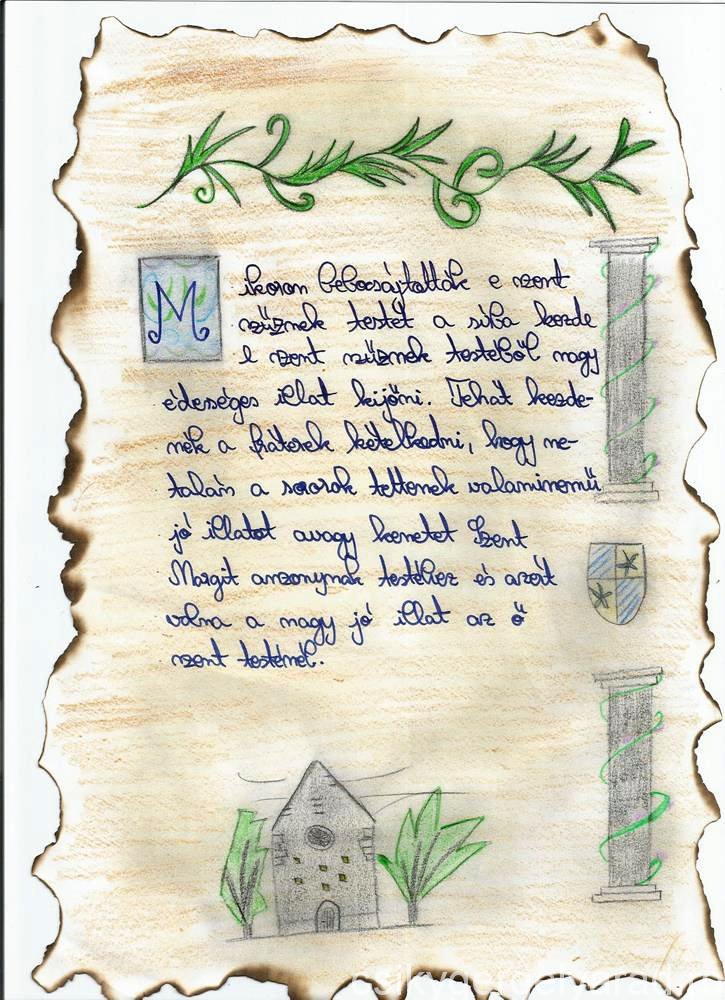 Mikoron bebocsájtották e szent
szűznek testét a síba kezde
e szent szűznek testéből nagy
édességes illat kijőni. Tehát kezde-
nék a fráterek kételkedni, hogy ne-
talán a sororok tettenek valaminemű
jó illatot avagy kenetet Szent
Margit asszonynak testéhez és azért
volna a nagy jó illat az ő
szent testénél.